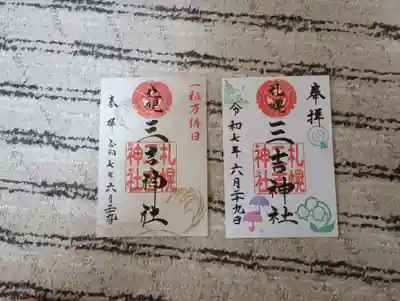 一粒万倍日
札幌
三吉神社
札幌
三吉
神社
奉拝
令和七年六月
奉拝
札幌
三吉神社
札幌
三吉
神社
令和七年六月二十九日